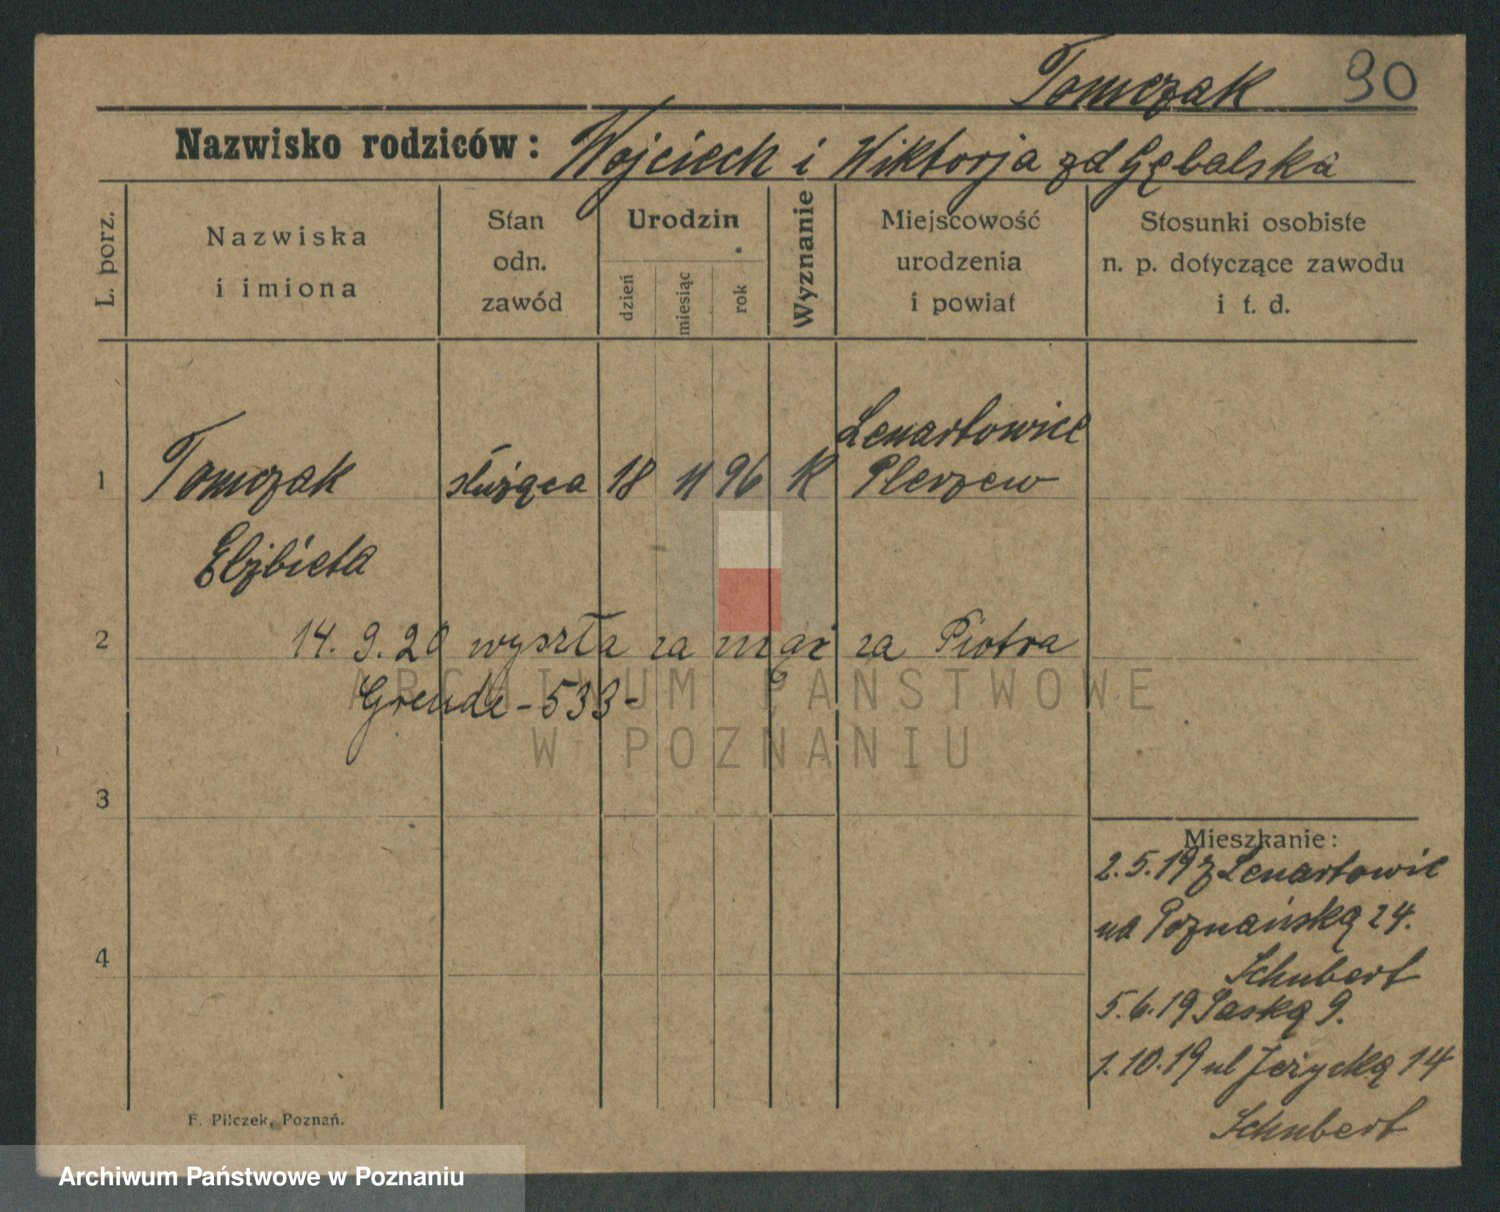 Tomczak 90
Nazwisko rodziców: Wojciech i Wiktorja zd Gębalska
L. porz.
Nazwiska i imiona
Stan odn. zawód
Urodzin
dzień miesiąc rok
Wyznanie
Miejscowość urodzenia i powiat
Stosunki osobiste n. p. dotyczące zawodu i t. d.
Lenartowice
1 Tomczak służąca 18 11 96 K Pleszew
Elżbieta
2 14. 9. 20 wyszła za mąż za Piotra
Grende - 533 -
ARCHIWUM PAŃSTWOWE
W POZNANIU
3
Mieszkanie:
2.5.19 z Lenartowic
na Poznańską 24.
4
Schubert
5.6.19 Saską 9.
1.10.19 ul Jeżycką 14
Schubert
F. Pilczek, Poznań.
Archiwum Państwowe w Poznaniu